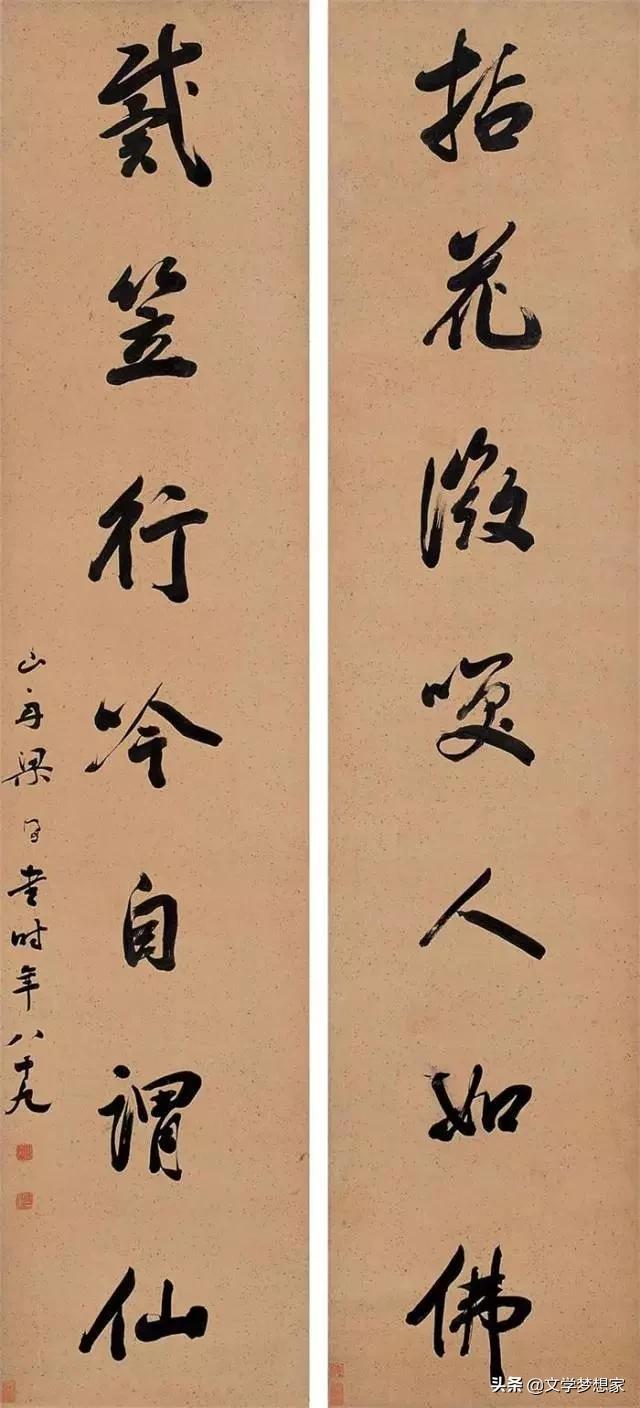 拈花微笑人如佛
戴笠行吟自謂仙
山舟梁同書時年八十九
头条 @文学梦想家